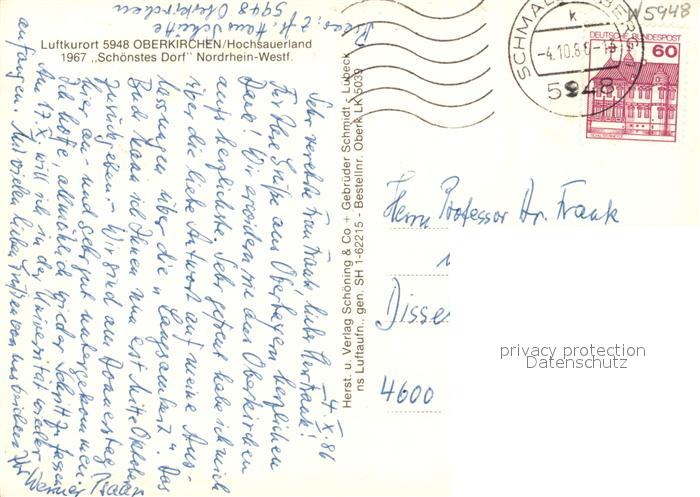 Luftkurort 5948 OBERKIRCHEN/Hochsauerland
1967 „Schönstes Dorf" Nordrhein-Westf.
W5948
SCHMALLENBERG
k
-4.10.86-
5948
DEUTSCHE BUNDESPOST
60
Herrn Professor Dr. Frank
4600
privacy protection
Datenschutz
Herst. u. Verlag Schöning & Co + Gebrüder Schmidt - Lübeck
ns Luftaufn. gen. SH 1-62215 - Bestellnr. Oberk LK 5039
z. Zt. Haus Schütte
5948 Oberkirchen
4.X.86
Sehr verehrte Frau Frank, lieber Herr Frank!
Für Ihre Grüße aus Oberbayern herzlichen
Dank! Wir erwidern sie aus Oberkirchen
aufs herzlichste. Sehr gefreut habe ich mich
über die liebe Antwort auf meine Aus-
lassungen über die „Langsamkeit". Das
Buch kann ich Ihnen nun erst Mitte Oktober
zurückgeben. - Wir sind am Donnerstag
hier an- und sehr gut untergekommen.
Ich hoffe, allmählich wieder Schritt zu fassen.
Am 17.X. will ich in der Universität wieder
anfangen. Mit vielen lieben Grüßen von uns beiden
Ihr Werner